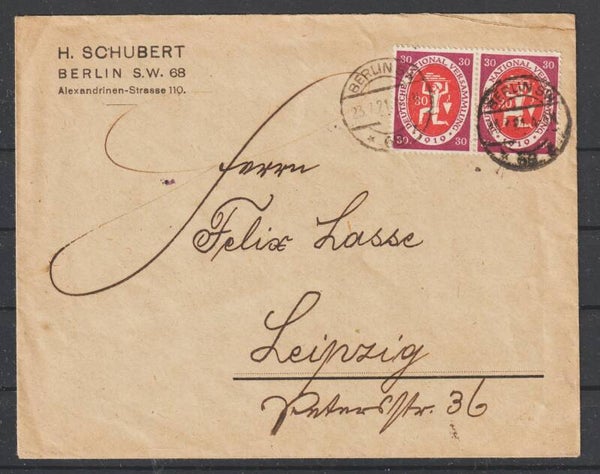 H. SCHUBERT
BERLIN S.W. 68
Alexandrinen-Strasse 110.
BERLIN SW
23.7.21
30 30
DEUTSCHE NATIONAL VERSAMMLUNG
30
1919
30. 30
30 30
DEUTSCHE NATIONAL VERSAMMLUNG
1919
30
BERLIN SW
* 68
Herrn
Felix Lasse
Leipzig
Petersstr. 36